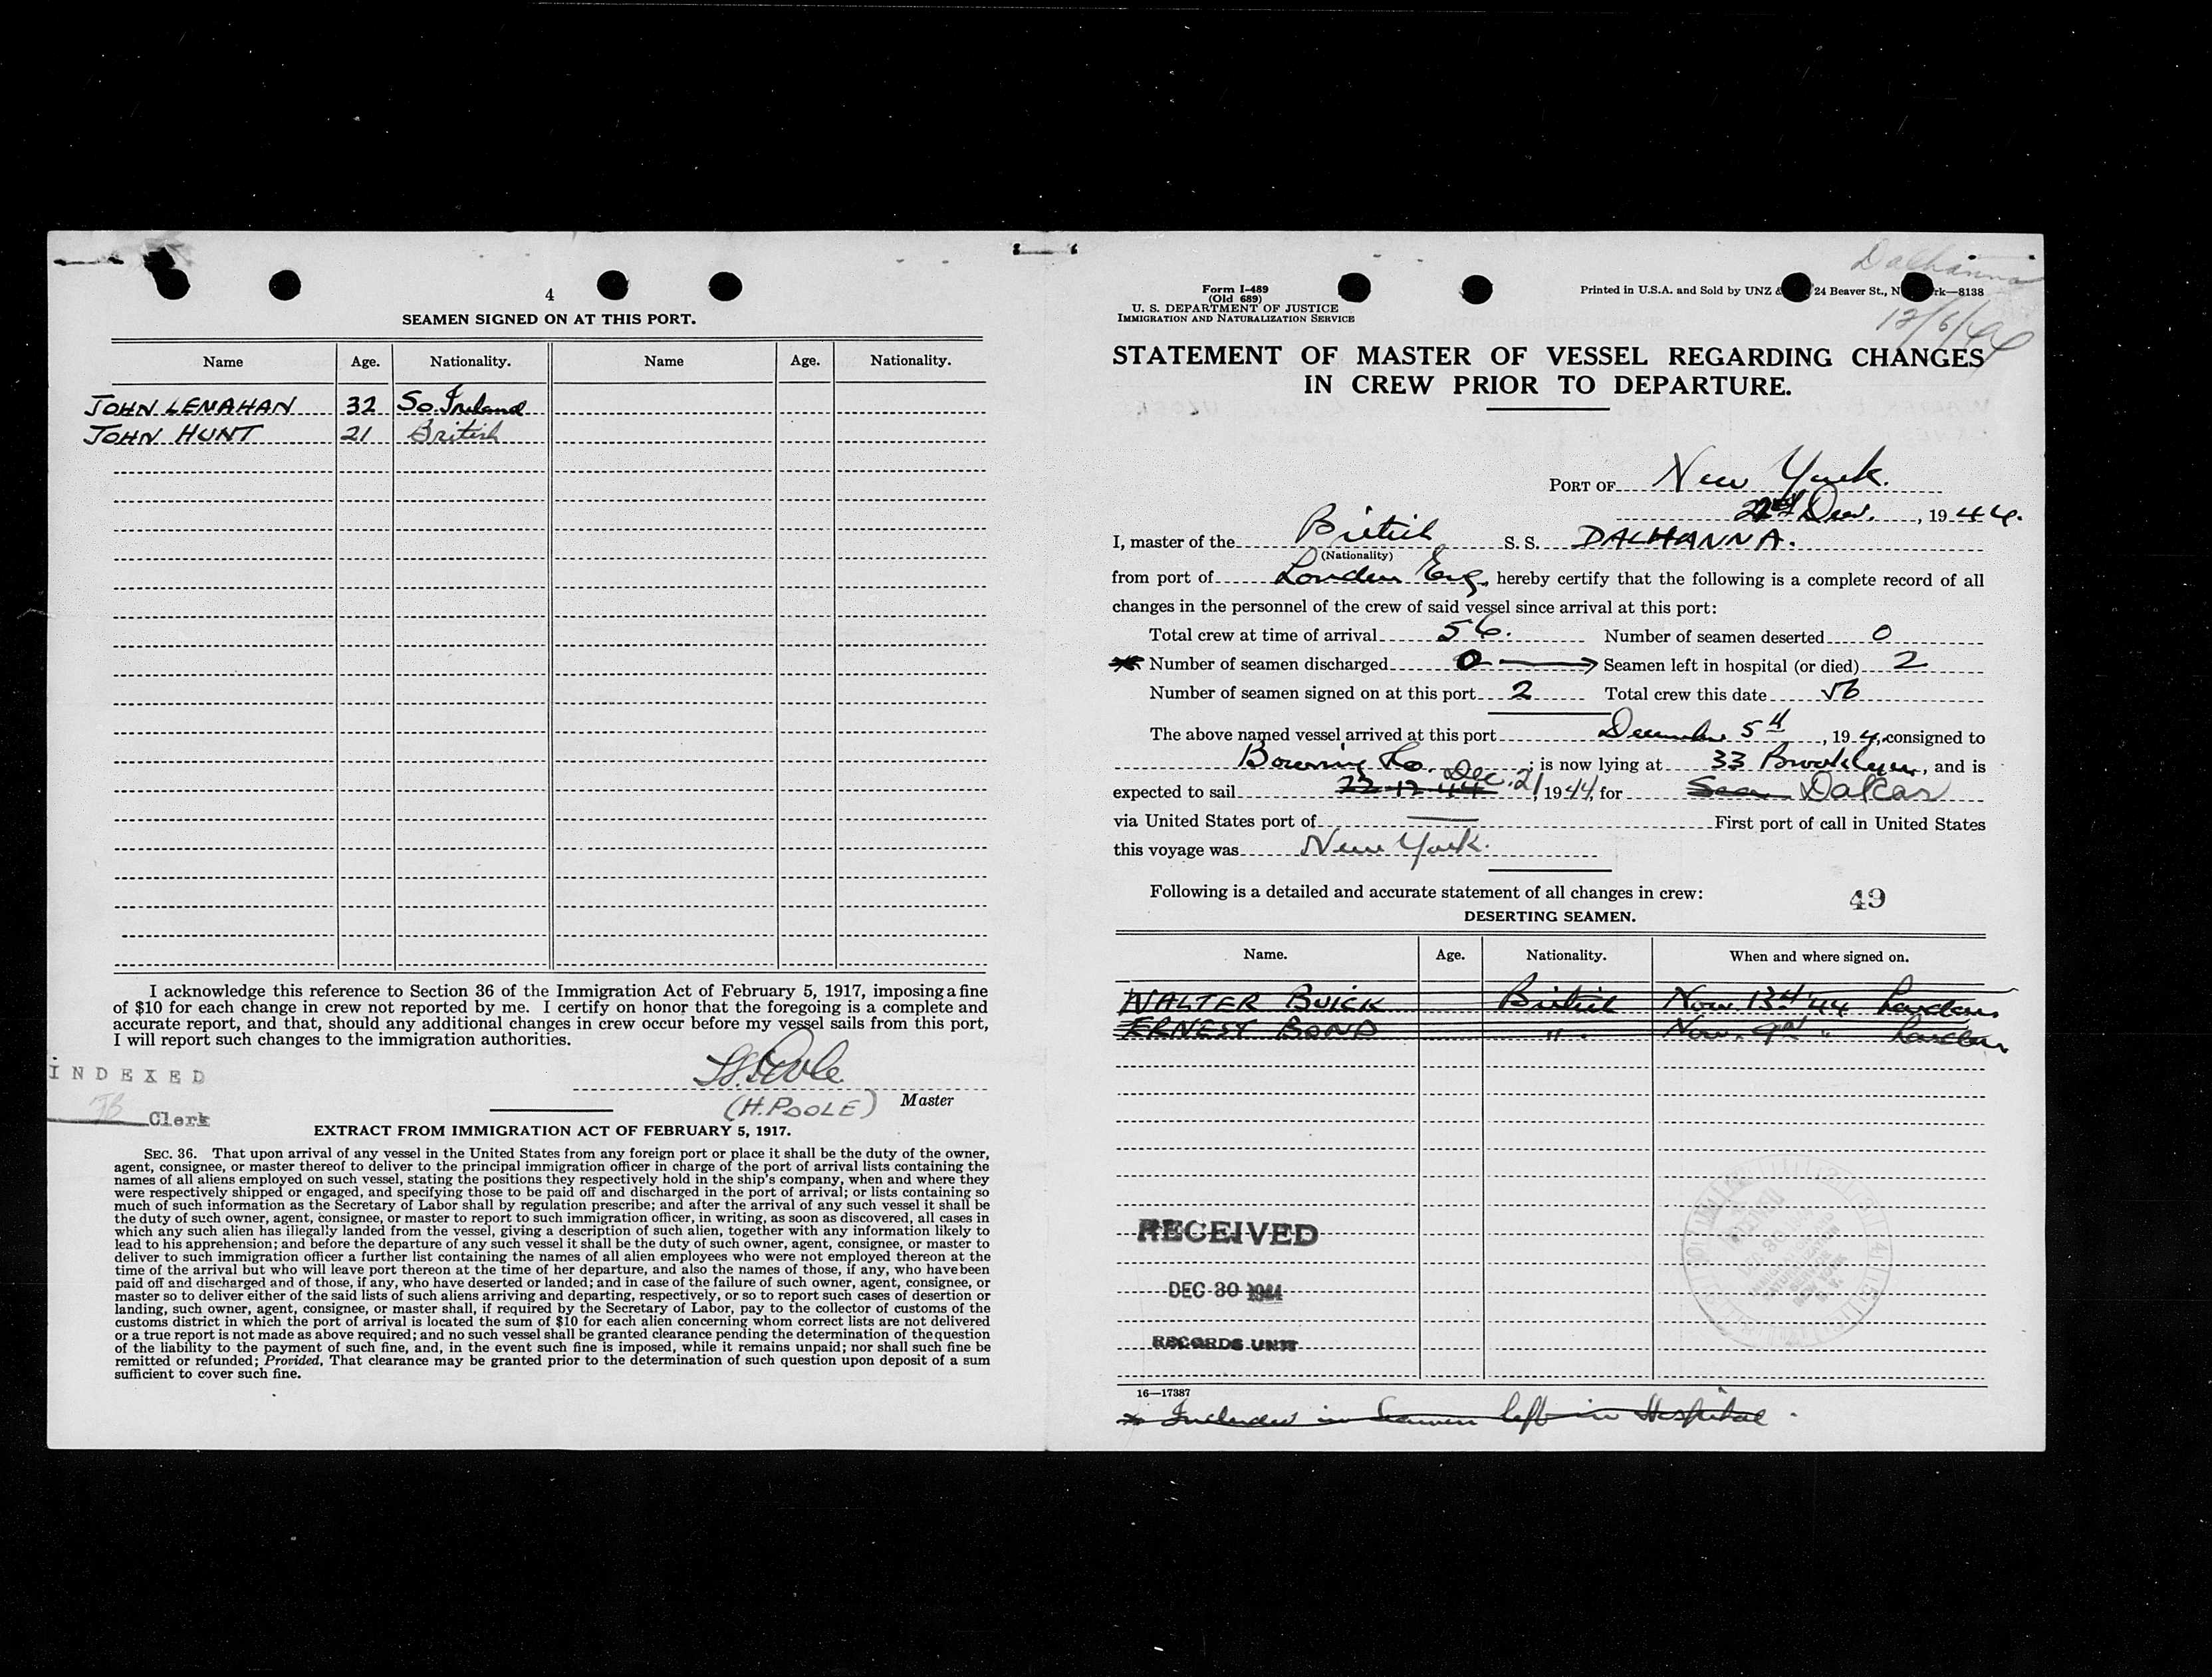 4
SEAMEN SIGNED ON AT THIS PORT.
Name Age. Nationality. Name Age. Nationality.
JOHN LENAHAN 32 So. Ireland
JOHN HUNT 21 British
I acknowledge this reference to Section 36 of the Immigration Act of February 5, 1917, imposing a fine
of $10 for each change in crew not reported by me. I certify on honor that the foregoing is a complete and
accurate report, and that, should any additional changes in crew occur before my vessel sails from this port,
I will report such changes to the immigration authorities.
INDEXED
Clerk
H. Poole
(H. POOLE) Master
EXTRACT FROM IMMIGRATION ACT OF FEBRUARY 5, 1917.
SEC. 36. That upon arrival of any vessel in the United States from any foreign port or place it shall be the duty of the owner,
agent, consignee, or master thereof to deliver to the principal immigration officer in charge of the port of arrival lists containing the
names of all aliens employed on such vessel, stating the positions they respectively hold in the ship's company, when and where they
were respectively shipped or engaged, and specifying those to be paid off and discharged in the port of arrival; or lists containing so
much of such information as the Secretary of Labor shall by regulation prescribe; and after the arrival of any such vessel it shall be
the duty of such owner, agent, consignee, or master to report to such immigration officer, in writing, as soon as discovered, all cases in
which any such alien has illegally landed from the vessel, giving a description of such alien, together with any information likely to
lead to his apprehension; and before the departure of any such vessel it shall be the duty of such owner, agent, consignee, or master to
deliver to such immigration officer a further list containing the names of all alien employees who were not employed thereon at the
time of the arrival but who will leave port thereon at the time of her departure, and also the names of those, if any, who have been
paid off and discharged and of those, if any, who have deserted or landed; and in case of the failure of such owner, agent, consignee, or
master so to deliver either of the said lists of such aliens arriving and departing, respectively, or so to report such cases of desertion or
landing, such owner, agent, consignee, or master shall, if required by the Secretary of Labor, pay to the collector of customs of the
customs district in which the port of arrival is located the sum of $10 for each alien concerning whom correct lists are not delivered
or a true report is not made as above required; and no such vessel shall be granted clearance pending the determination of the question
of the liability to the payment of such fine, and, in the event such fine is imposed, while it remains unpaid; nor shall such fine be
remitted or refunded; Provided, That clearance may be granted prior to the determination of such question upon deposit of a sum
sufficient to cover such fine.
Dalhanna
12/6/44
Form I-489
(Old 689)
U. S. DEPARTMENT OF JUSTICE
IMMIGRATION AND NATURALIZATION SERVICE
Printed in U.S.A. and Sold by UNZ & 24 Beaver St., N rk—8138
STATEMENT OF MASTER OF VESSEL REGARDING CHANGES
IN CREW PRIOR TO DEPARTURE.
PORT OF New York.
Dec. , 1944.
I, master of the British S. S. DALHANNA.
(Nationality)
from port of London Eng, hereby certify that the following is a complete record of all
changes in the personnel of the crew of said vessel since arrival at this port:
Total crew at time of arrival 56. Number of seamen deserted 0
Number of seamen discharged 0 Seamen left in hospital (or died) 2
Number of seamen signed on at this port 2 Total crew this date 56
The above named vessel arrived at this port December 5th, 194, consigned to
Bowring Co. ; is now lying at 33 Brooklyn, and is
expected to sail 22-12-44 Dec. 21, 1944, for Dakar
via United States port of — First port of call in United States
this voyage was New York.
Following is a detailed and accurate statement of all changes in crew:
49
DESERTING SEAMEN.
Name. Age. Nationality. When and where signed on.
WALTER BUICK British Nov. 13th 44 London
ERNEST BOND " . Nov. " London
RECEIVED
DEC 30 1944
RECORDS UNIT
16—17387
* Included in Seamen left in Hospital.